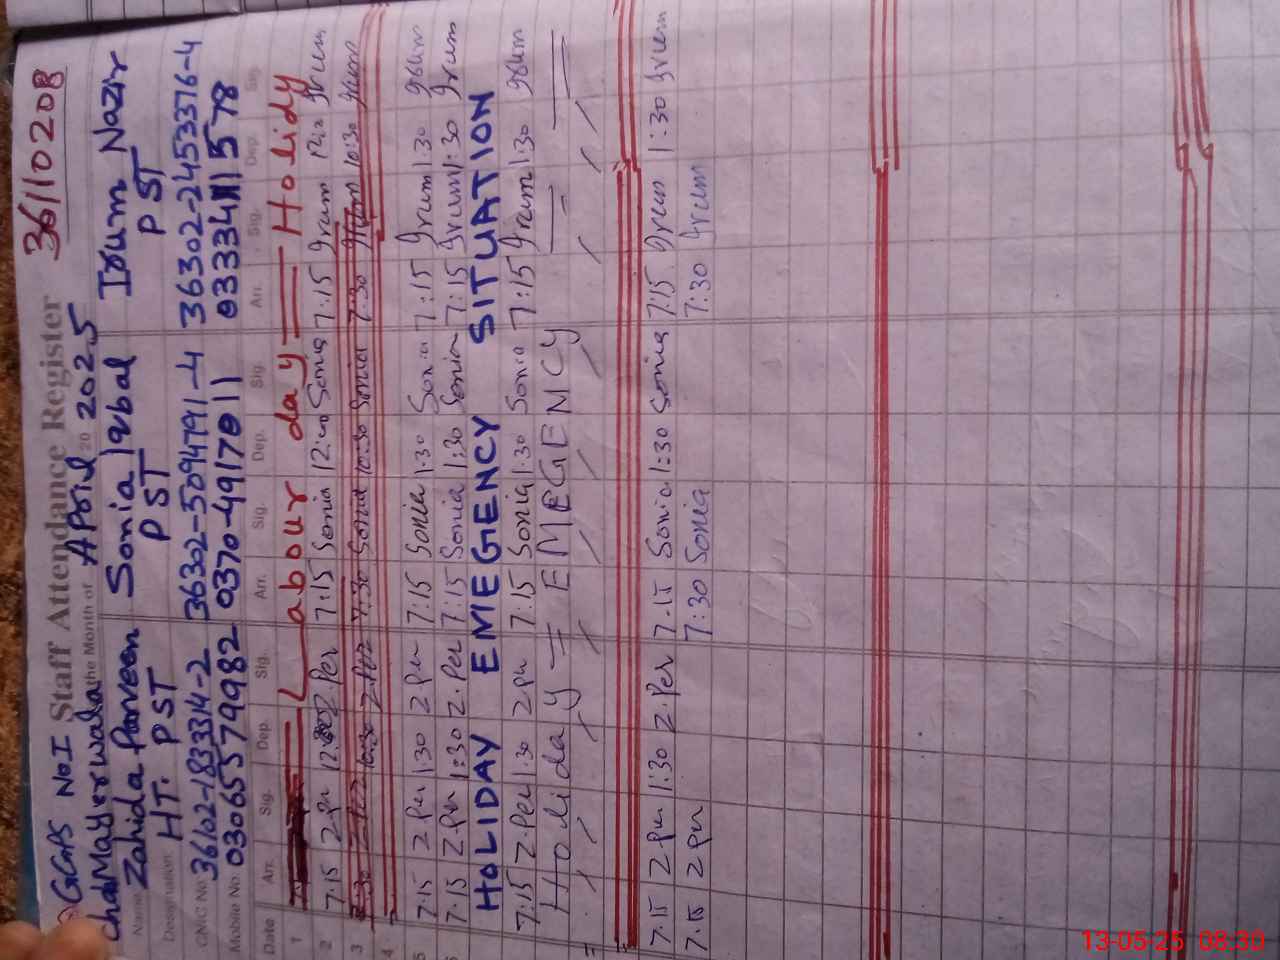 36110208
GGPS No I Staff Attendance Register
Chak Mayerwala the Month of April 20 2025
Name Zahida Parveen Sonia Iqbal Irum Nazir
Designation HT. PST PST PST
CNIC No 36102-1833314-2 36302-5094791-4 36302-2453376-4
Mobile No 03065579982 0370-4917811
Date Arr. Sig. Dep. Sig. Arr. Sig. Dep. Sig. Arr. Sig. Dep. Sig.
1 Labour day Holidy
2 7:15 2 Per 2.Per 7:15 Sonia 12:00 Sonia 7:15 Irum Irum
3 7:30 2 Per 10:30 2 Per 7:30 Sonia 10:30 Sonia 7:30 Irum 10:30 Irum
4
5 7:15 2 Per 1:30 2 Per 7:15 Sonia 1:30 Sonia 7:15 Irum 1:30 Irum
7:15 2 Per 1:30 2.Per 7:15 Sonia 1:30 Sonia 7:15 Irum 1:30 Irum
HOLIDAY EMEGENCY SITUATION
7:15 2 Per 1:30 2 Per 7:15 Sonia 1:30 Sonia 7:15 Irum 1:30 Irum
Holiday = EMEGENCY
7:15 2 Per 1:30 2.Per 7:15 Sonia 1:30 Sonia 7:15 Irum 1:30 Irum
7:15 2 Per 7:30 Sonia 7:30 Irum
13-05-25 08:30